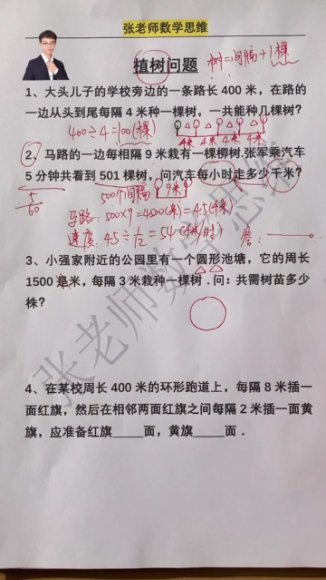 张老师数学思维
植树问题
树=间隔+1棵
1、大头儿子的学校旁边的一条路长 400 米，在路的
一边从头到尾每隔 4 米种一棵树，一共能种几棵树？
400÷4=100(棵)
4米 4米 4米 4米
2、马路的一边每相隔 9 米栽有一棵柳树.张军乘汽车
5 分钟共看到 501 棵树，问汽车每小时走多少千米？
5/60
500个间隔
9米
马路：500×9=4500(米)=4.5(千米)
速度：4.5÷1/12=54(千米/时)
答：
3、小强家附近的公园里有一个圆形池塘，它的周长
1500 是米，每隔 3 米栽种一棵树．问：共需树苗多少
株？
4、在某校周长 400 米的环形跑道上，每隔 8 米插一
面红旗，然后在相邻两面红旗之间每隔 2 米插一面黄
旗，应准备红旗____面，黄旗____面．
张老师数学思维